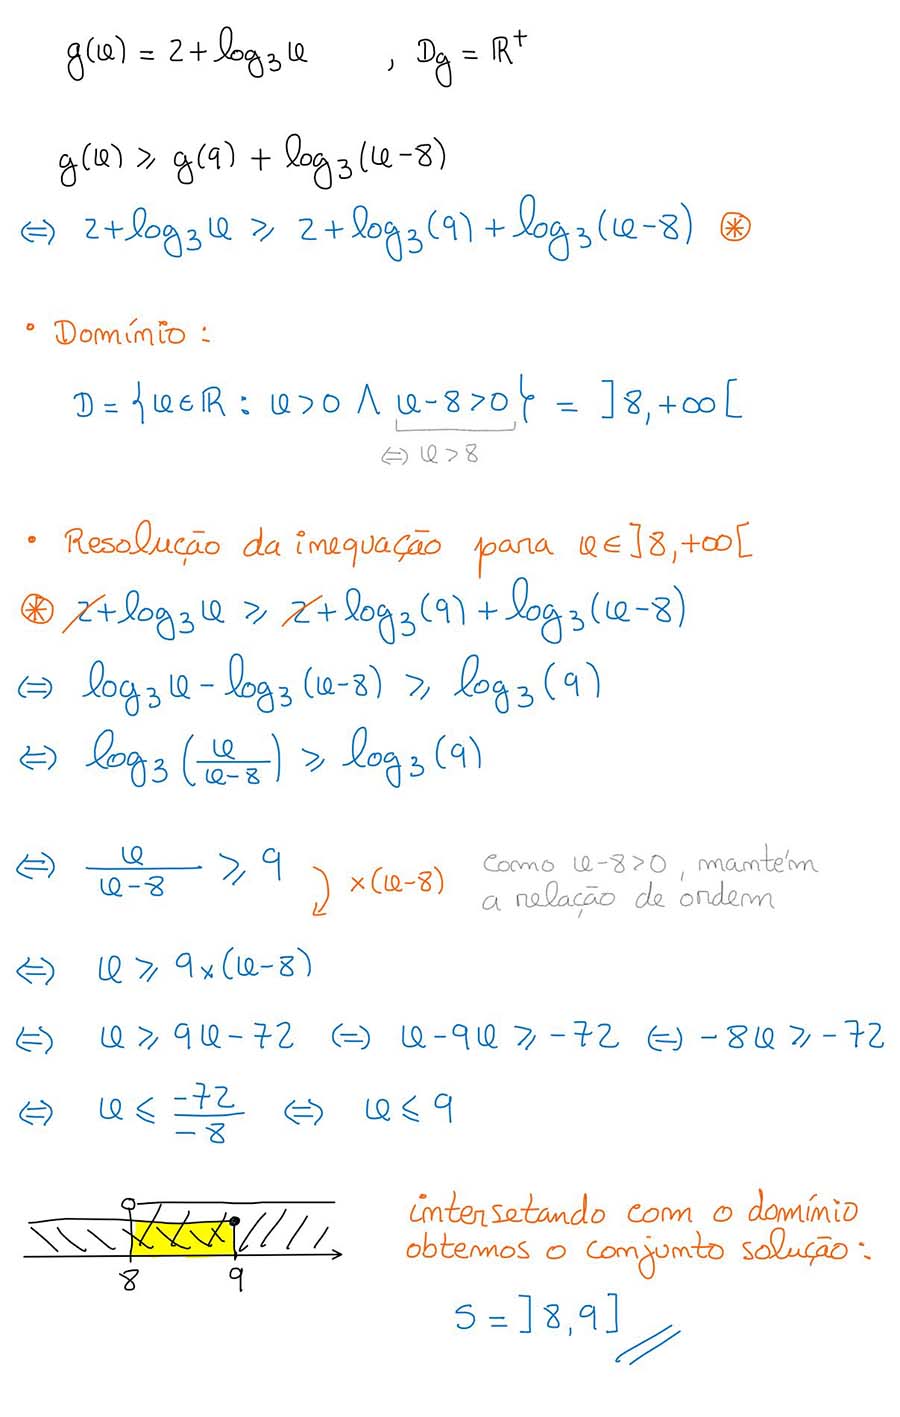 g(x) = 2 + log₃ x , Dg = ℝ⁺
g(x) ⩾ g(9) + log₃(x-8)
⇔ 2 + log₃ x ⩾ 2 + log₃(9) + log₃(x-8) ⊛
• Domínio :
D = {x ∈ ℝ : x > 0 ∧ x-8 > 0} = ]8, +∞[
⇔ x > 8
• Resolução da inequação para x ∈ ]8, +∞[
⊛ 2 + log₃ x ⩾ 2 + log₃(9) + log₃(x-8)
⇔ log₃ x - log₃(x-8) ⩾ log₃(9)
⇔ log₃(x/(x-8)) ⩾ log₃(9)
⇔ x/(x-8) ⩾ 9 ×(x-8) como x-8>0, mantém
a relação de ordem
⇔ x ⩾ 9×(x-8)
⇔ x ⩾ 9x - 72 ⇔ x - 9x ⩾ -72 ⇔ -8x ⩾ -72
⇔ x ⩽ -72/-8 ⇔ x ⩽ 9
intersetando com o domínio
obtemos o conjunto solução :
8 9
S = ]8, 9]